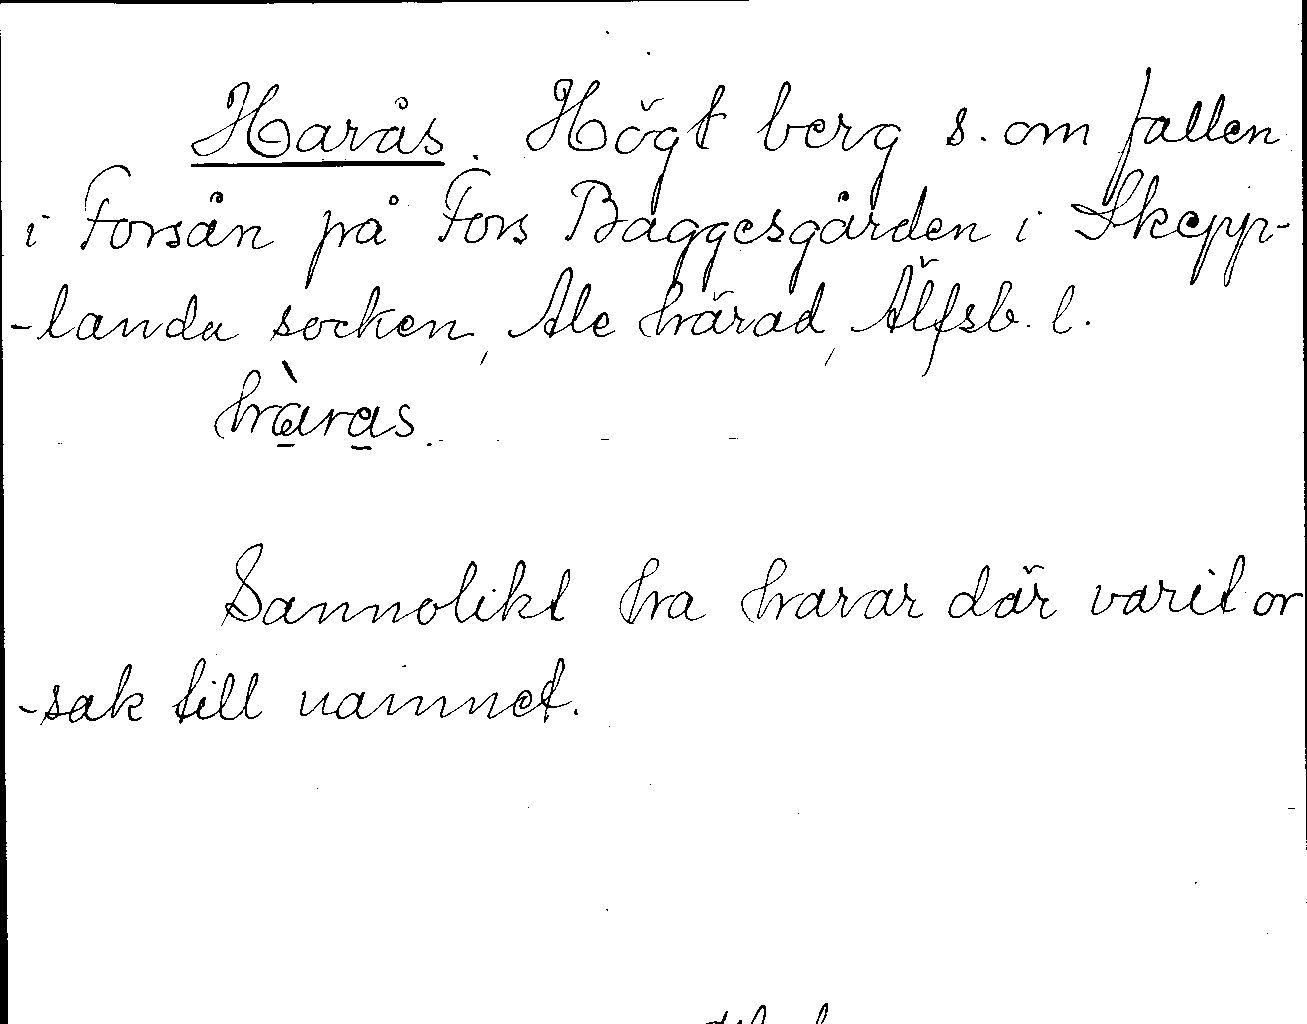 Harås. Högt berg s. om fallen
i Forsån på Fors Baggesgården i Skepp-
-landa socken, Ale härad, Älfsb. l.
hàras.
Sannolikt ha harar där varit or
-sak till namnet.